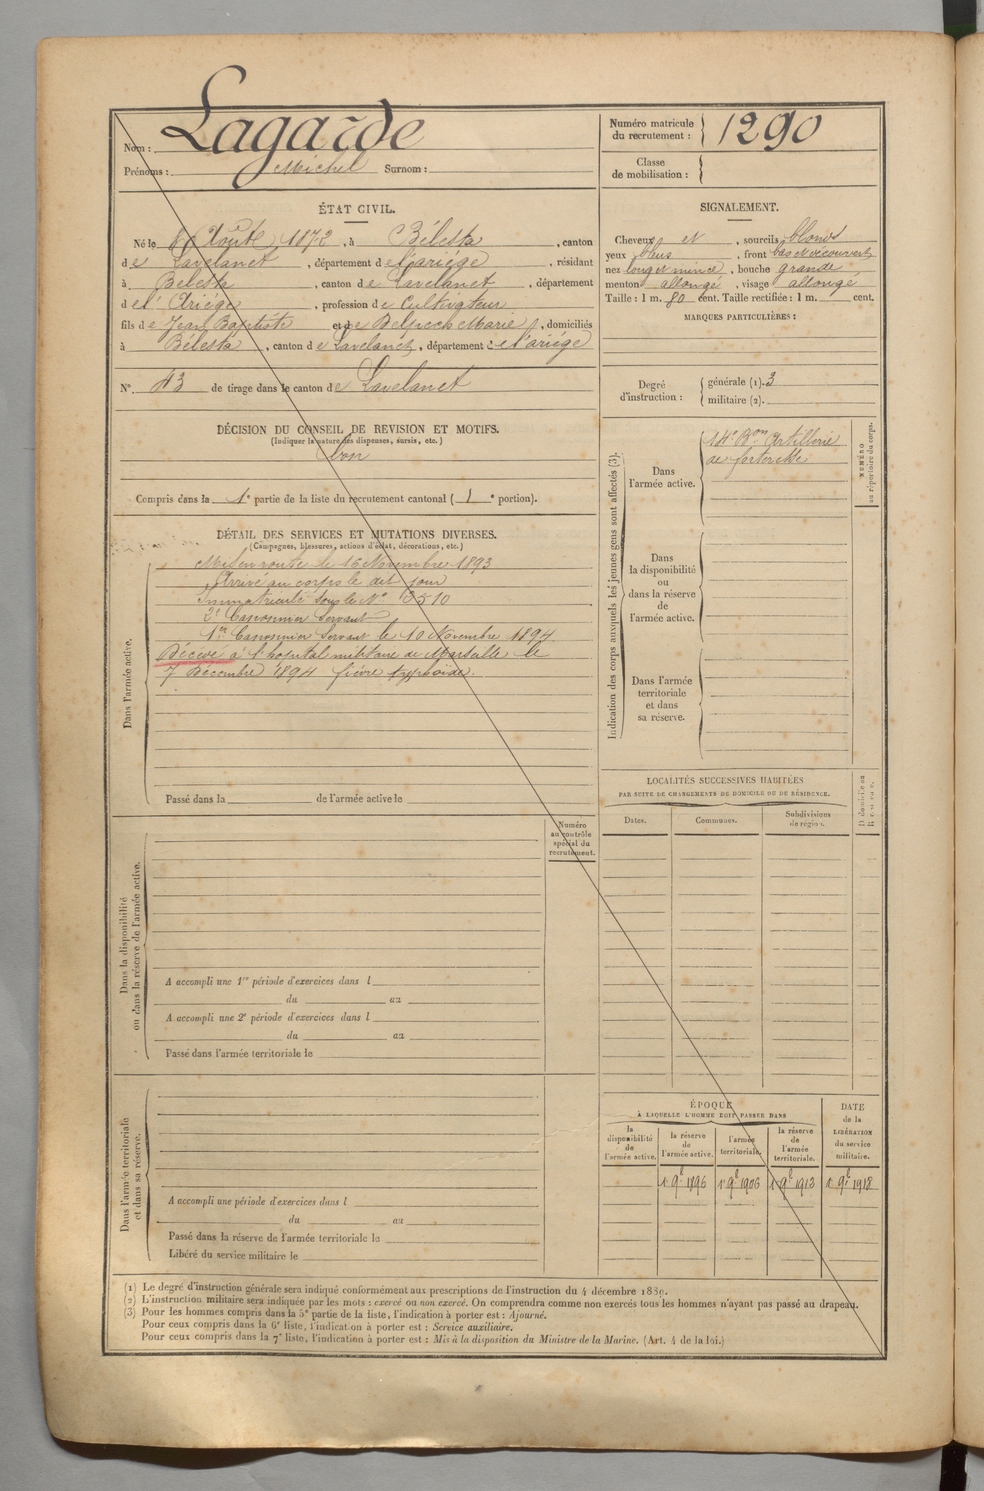 Nom : Lagarde
Prénoms : Michel Surnom :
Numéro matricule du recrutement : 1290
Classe de mobilisation :
ÉTAT CIVIL.
Né le 8 Août 1872, à Bélesta, canton
de Lavelanet, département de l'ariége, résidant
à Bélesta, canton de Lavelanet, département
de l'Ariége, profession de Cultivateur
fils de Jean Baptiste et de Belpech Marie, domiciliés
à Bélesta, canton de Lavelanet, département de l'ariége
N° 43 de tirage dans le canton de Lavelanet
DÉCISION DU CONSEIL DE REVISION ET MOTIFS.
(Indiquer la nature des dispenses, sursis, etc.)
bon
Compris dans la 1e partie de la liste du recrutement cantonal (1e portion).
SIGNALEMENT.
Cheveux et , sourcils blonds
yeux bleus , front bas et découvert
nez long et mince , bouche grande
menton allongé , visage allongé
Taille : 1 m. 80 cent. Taille rectifiée : 1 m. cent.
MARQUES PARTICULIÈRES :
Degré d'instruction :
générale (1). 3
militaire (2).
DÉTAIL DES SERVICES ET MUTATIONS DIVERSES.
(Campagnes, blessures, actions d'éclat, décorations, etc.)
Dans l'armée active.
Mis en route le 16 Novembre 1893
Arrivé au corps le dit jour
Immatriculé sous le N° 3510
2e Canonnier Servant
1er Canonnier Servant le 10 Novembre 1894
Décédé à l'hopital militaire de Marseille le
7 Décembre 1894 fièvre typhoïde.
Passé dans la de l'armée active le
Indication des corps auxquels les jeunes gens sont affectés (3).
NUMÉRO au répertoire du corps.
Dans l'armée active.
14e Bon Artillerie
de forteresse
Dans la disponibilité ou dans la réserve de l'armée active.
Dans l'armée territoriale et dans sa réserve.
LOCALITÉS SUCCESSIVES HABITÉES
PAR SUITE DE CHANGEMENTS DE DOMICILE OU DE RÉSIDENCE.
Dates.
Communes.
Subdivisions de région.
Dans la disponibilité ou dans la réserve de l'armée active.
Numéro au contrôle spécial du recrutement.
A accompli une 1re période d'exercices dans l
du au
A accompli une 2e période d'exercices dans l
du au
Passé dans l'armée territoriale le
Dans l'armée territoriale et dans sa réserve.
A accompli une période d'exercices dans l
du au
Passé dans la réserve de l'armée territoriale le
Libéré du service militaire le
ÉPOQUE
À LAQUELLE L'HOMME DOIT PASSER DANS
la disponibilité de l'armée active.
la réserve de l'armée active.
l'armée territoriale.
la réserve de l'armée territoriale.
DATE de la LIBÉRATION du service militaire.
1r 9e 1896 1r 9e 1906 1r 9e 1912 1r 9e 1918
(1) Le degré d'instruction générale sera indiqué conformément aux prescriptions de l'instruction du 4 décembre 1889.
(2) L'instruction militaire sera indiquée par les mots : exercé ou non exercé. On comprendra comme non exercés tous les hommes n'ayant pas passé au drapeau.
(3) Pour les hommes compris dans la 5e partie de la liste, l'indication à porter est : Ajourné.
Pour ceux compris dans la 6e liste, l'indication à porter est : Service auxiliaire.
Pour ceux compris dans la 7e liste, l'indication à porter est : Mis à la disposition du Ministre de la Marine. (Art. 4 de la loi.)